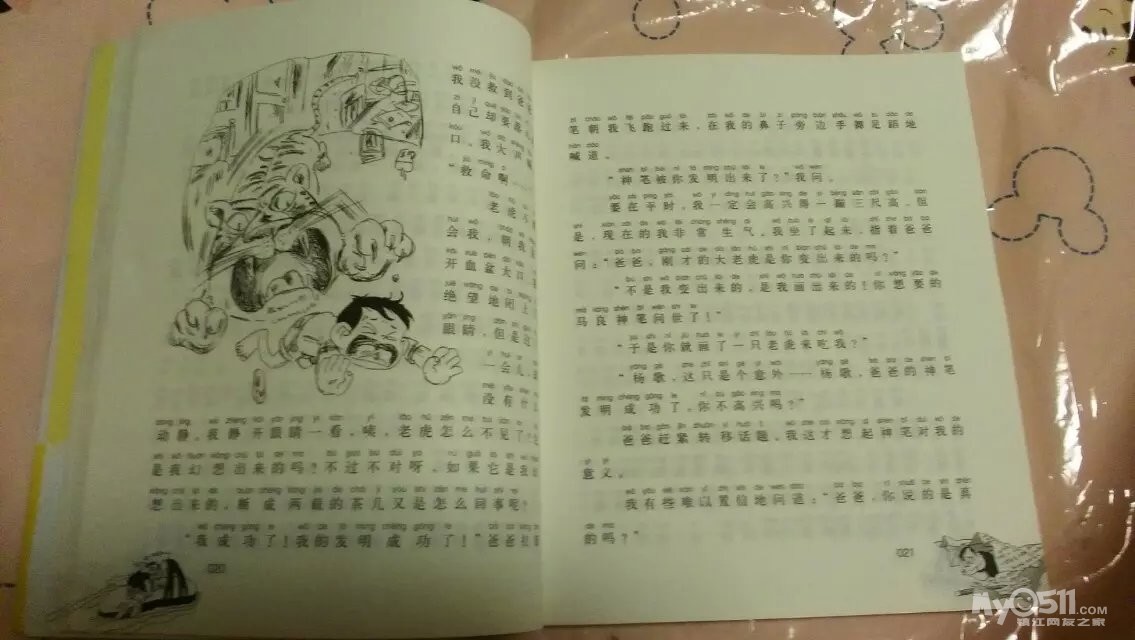 我没救到爸
自己却要
口。我大声
“救命啊……
老虎不
会我，朝我
开血盆大口，
绝望地闭上
眼睛，但是过
一会儿，
没有什么
动静。我睁开眼睛一看，咦，老虎怎么不见了？
是我幻想出来的吗？不过不对呀，如果它是我幻
想出来的，断成两截的茶几又是怎么回事呢？
“我成功了！我的发明成功了！”爸爸
020
笔朝我飞跑过来，在我的鼻子旁边手舞足蹈地
喊道。
“神笔被你发明出来了？”我问。
要在平时，我一定会高兴得一蹦三尺高，但
是，现在的我非常生气。我坐了起来，指着爸爸
问：“爸爸，刚才的大老虎是你变出来的吗？”
“不是我变出来的，是我画出来的！你想要的
马良神笔问世了！”
“于是你就画了一只老虎来吃我？”
“杨歌，这只是个意外——杨歌，爸爸的神笔
发明成功了，你不高兴吗？”
爸爸赶紧转移话题。我这才想起神笔对我的
意义。
我有些难以置信地问道：“爸爸，你说的是真
的吗？”
021
My0511.COM
镇江网友之家